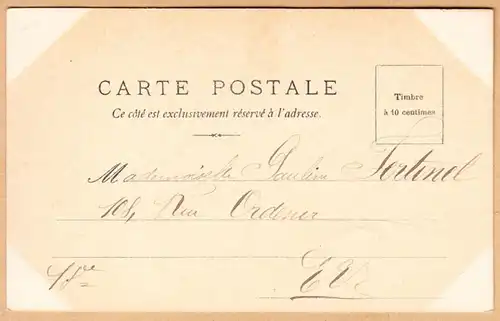 CARTE POSTALE
Ce côté est exclusivement réservé à l'adresse.
Timbre
à 10 centimes
Mademoiselle Pauline Fertinel
108, Rue Ordener
18e
E.V.